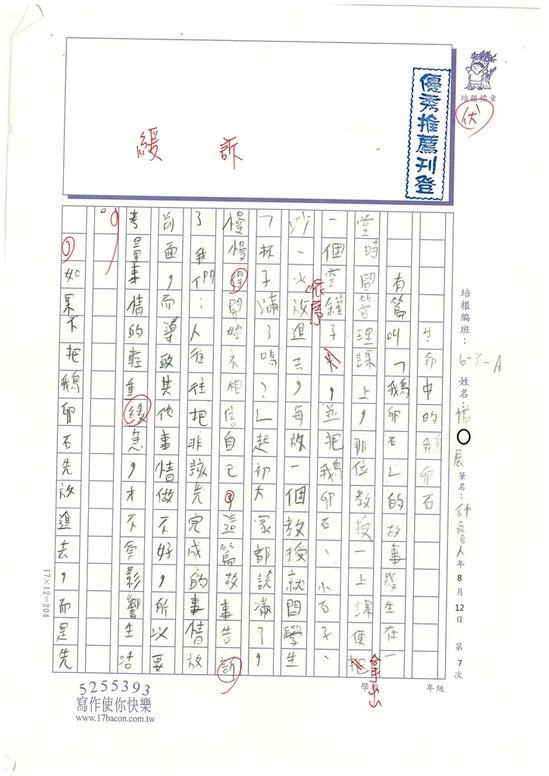 優秀推薦刊登
培根標章
優
緩 訴
培根編班：6-3-A 姓名：
年8月12日 第7次
學 年級
生命中的鵝卵石
有篇叫「鵝卵石」的故事發生在一
堂時間管理課上，那位教授一上課便拿出
一個空罐子，並把鵝卵石、小石子、
沙、水依序放進去，每放一個教授就問學生
「杯子滿了嗎？」起初大家都說滿了，
慢慢得開始不相信自己，這篇故事告訴
了我們：人往往把非該先完成的事情放
前面，而導致其他事情做不好，所以要
考量事情的輕重緩急，才不會影響生活
。
如果不把鵝卵石先放進去，而是先
17×12=204
5255393
寫作使你快樂
www.17bacon.com.tw